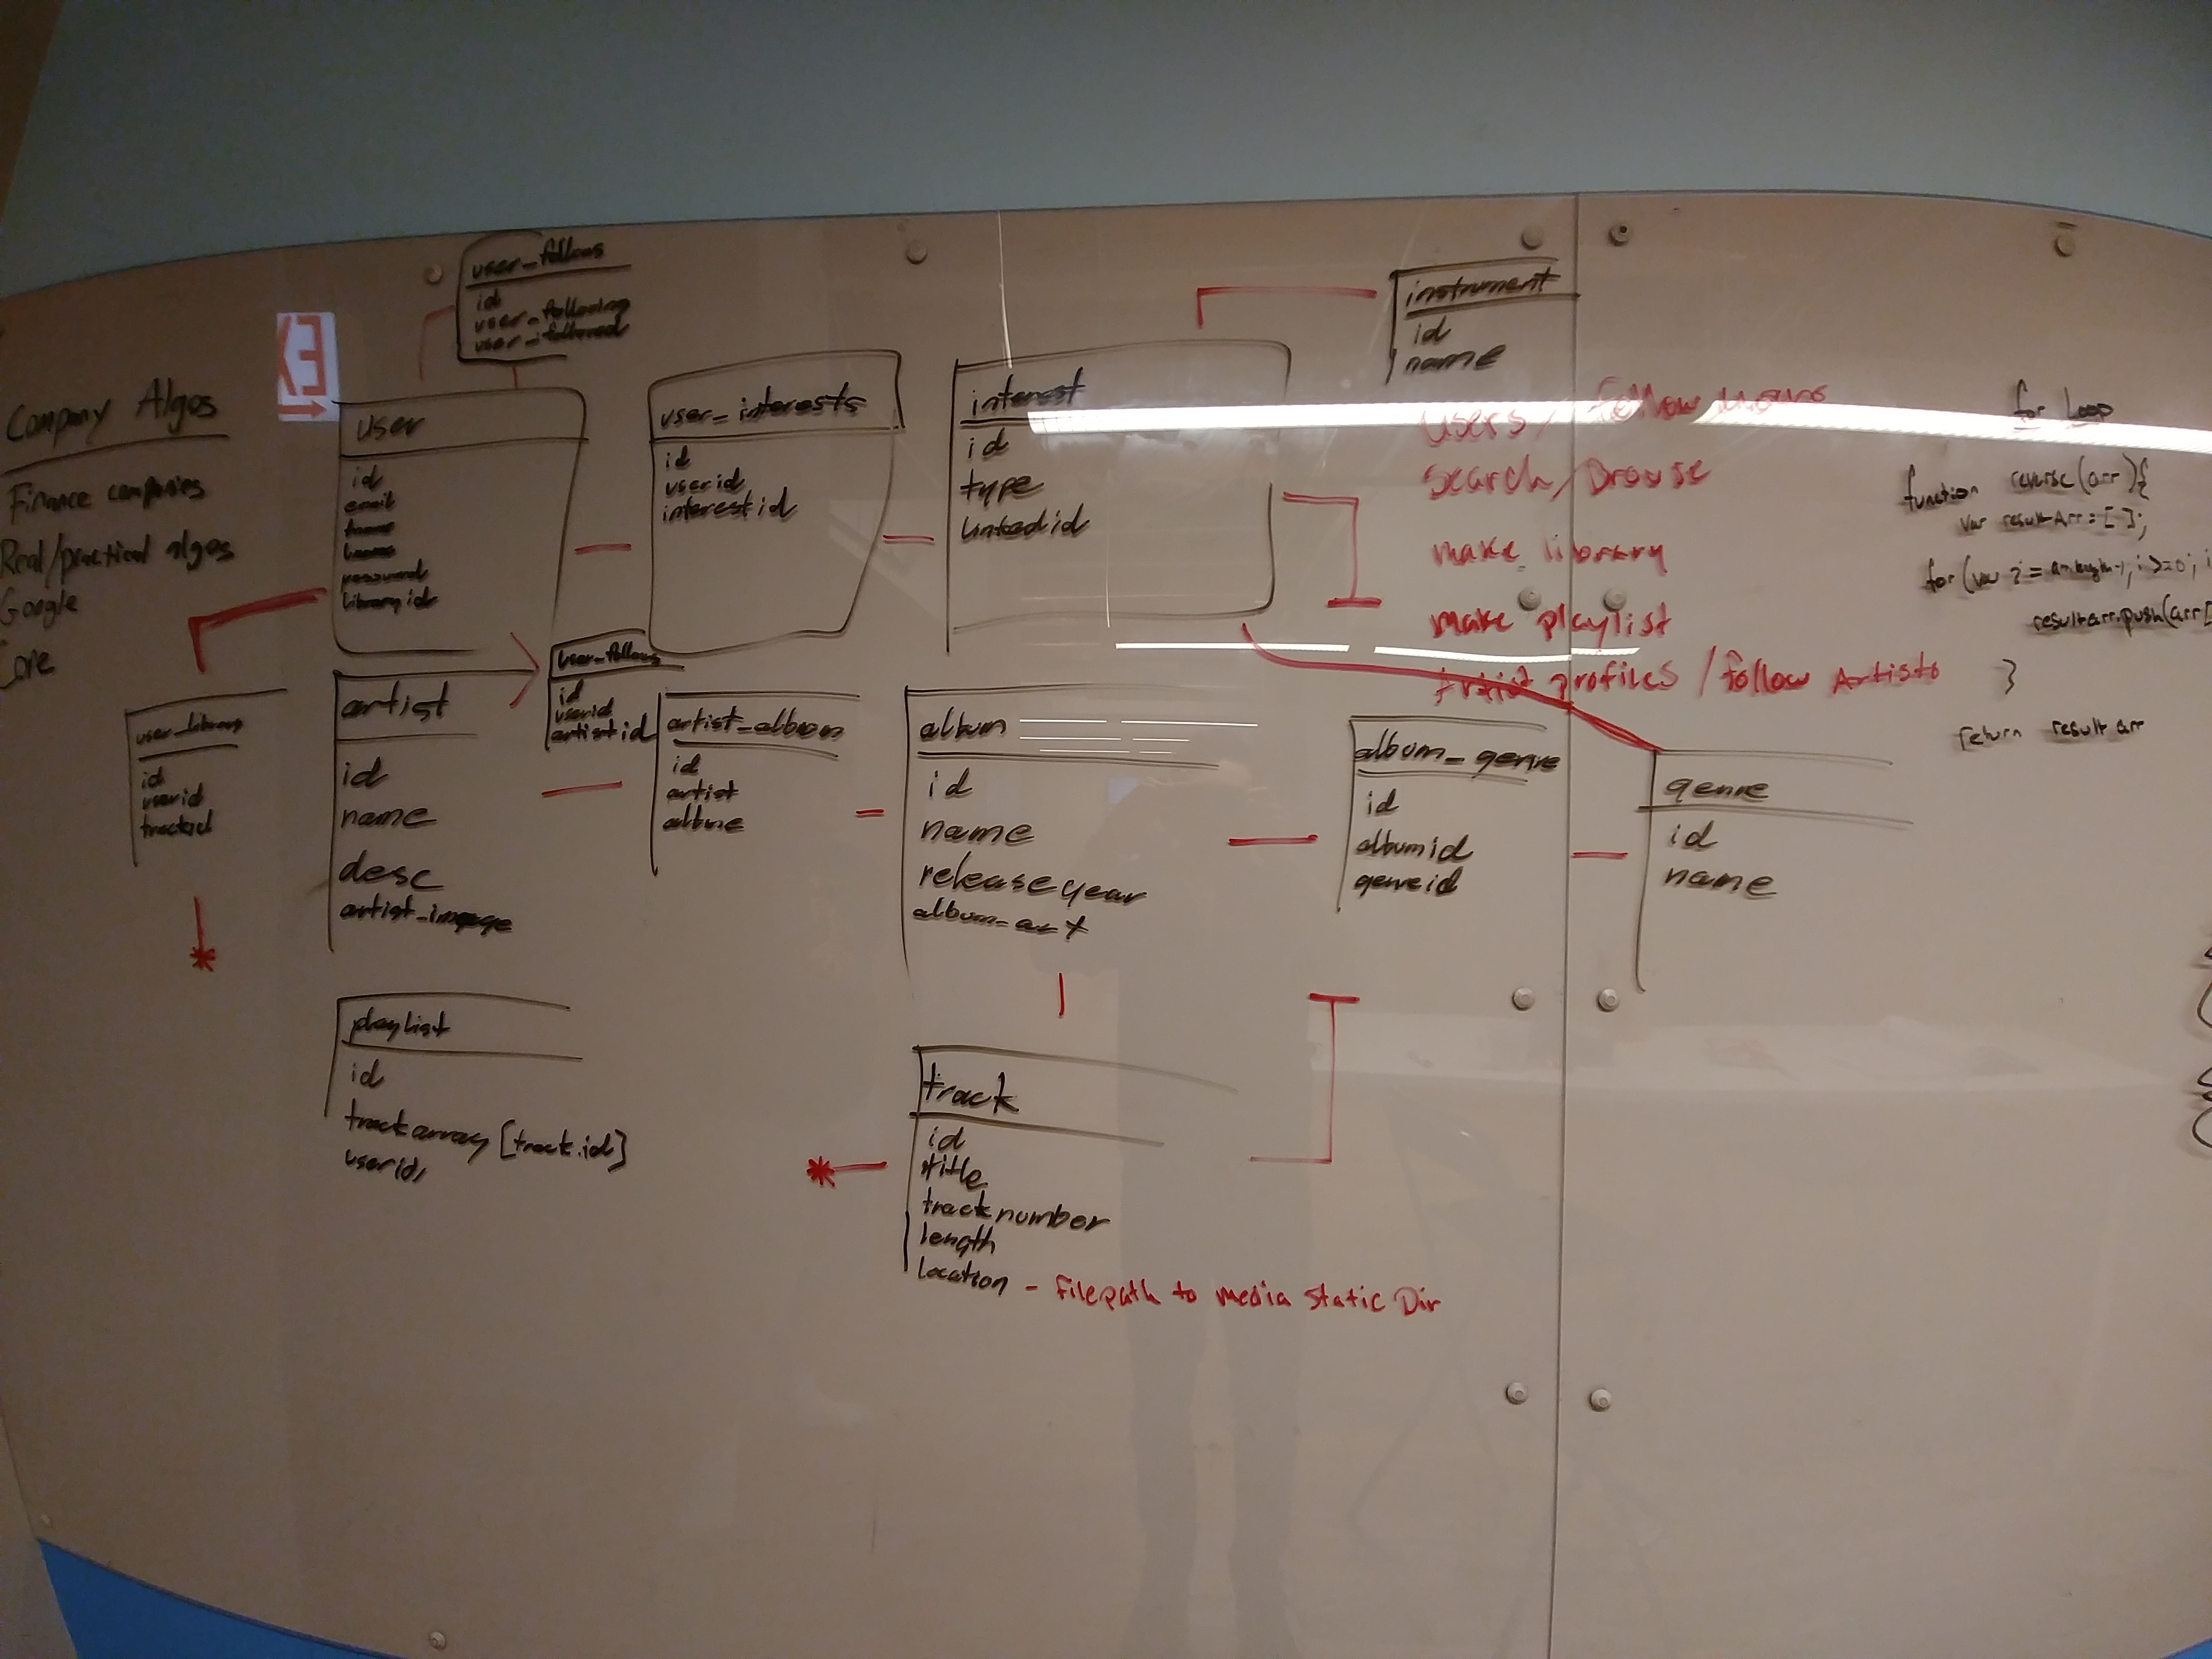 user_follows
id
user_following
user_followed
instrument
id
name
Company Algos
Finance companies
Real/practical algos
Google
Core
user
id
email
fname
lname
password
library id
user_interests
id
userid
interest id
interest
id
type
linked id
users / follow
search/Browse
make library
make playlist
Artist profiles / follow Artists
for Loop
function reverse(arr){
var resultArr = [ ];
for (var i = arr.length-1; i >= 0; i
resultarr.push(arr[
}
return result arr
user_library
id
userid
trackid
artist
id
name
desc
artist_image
user_follows
id
userid
artist id
artist_album
id
artist
album
id
name
release year
album_art
album_genre
id
albumid
genreid
genre
id
name
playlist
id
track array [track.id]
userid
track
id
title
track number
length
location - filepath to media static Dir